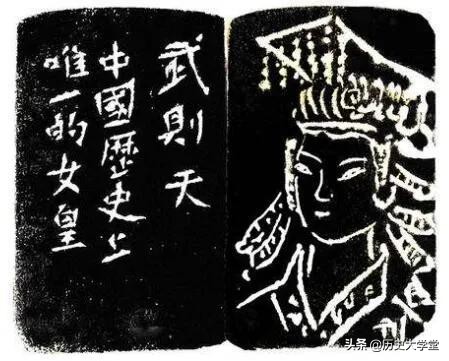 武则天
中國歷史上
唯一的女皇
头条@历史大学堂